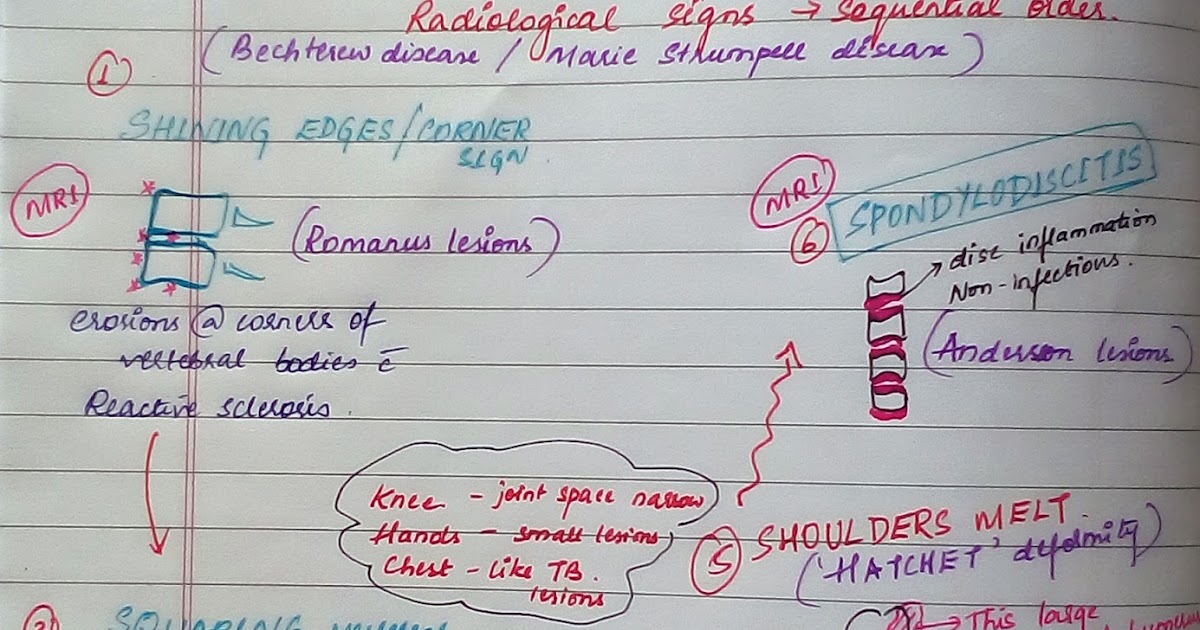 Radiological signs → Sequential order.
(Bechterew disease / Marie Strumpell disease)
①
SHINING EDGES/CORNER
SIGN.
MRI
(Romanus lesions)
erosions @ corners of
vertebral bodies c̄
Reactive sclerosis.
MRI
⑥ SPONDYLODISCITIS
→ disc inflammation
Non-infections.
(Anderson lesions)
Knee - joint space narrow
Hands - small lesions
Chest - like TB.
lesions
⑤ SHOULDERS MELT.
('HATCHET' deformity)
→ This large